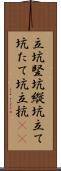 立坑竪坑縦坑立て
坑たて坑立抗